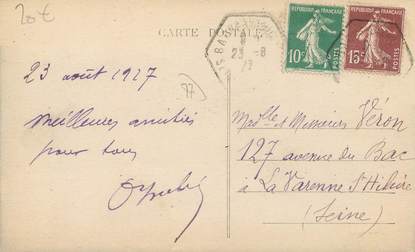 20€
CARTE POSTALE
23 -8
RÉPUBLIQUE FRANÇAISE
10c
POSTES
RÉPUBLIQUE FRANÇAISE
15c
POSTES
23 août 1927
77
Meilleures amitiés
pour tous
Melle et Messieurs Véron
127 avenue du Bac
à La Varenne St Hilaire
(Seine)